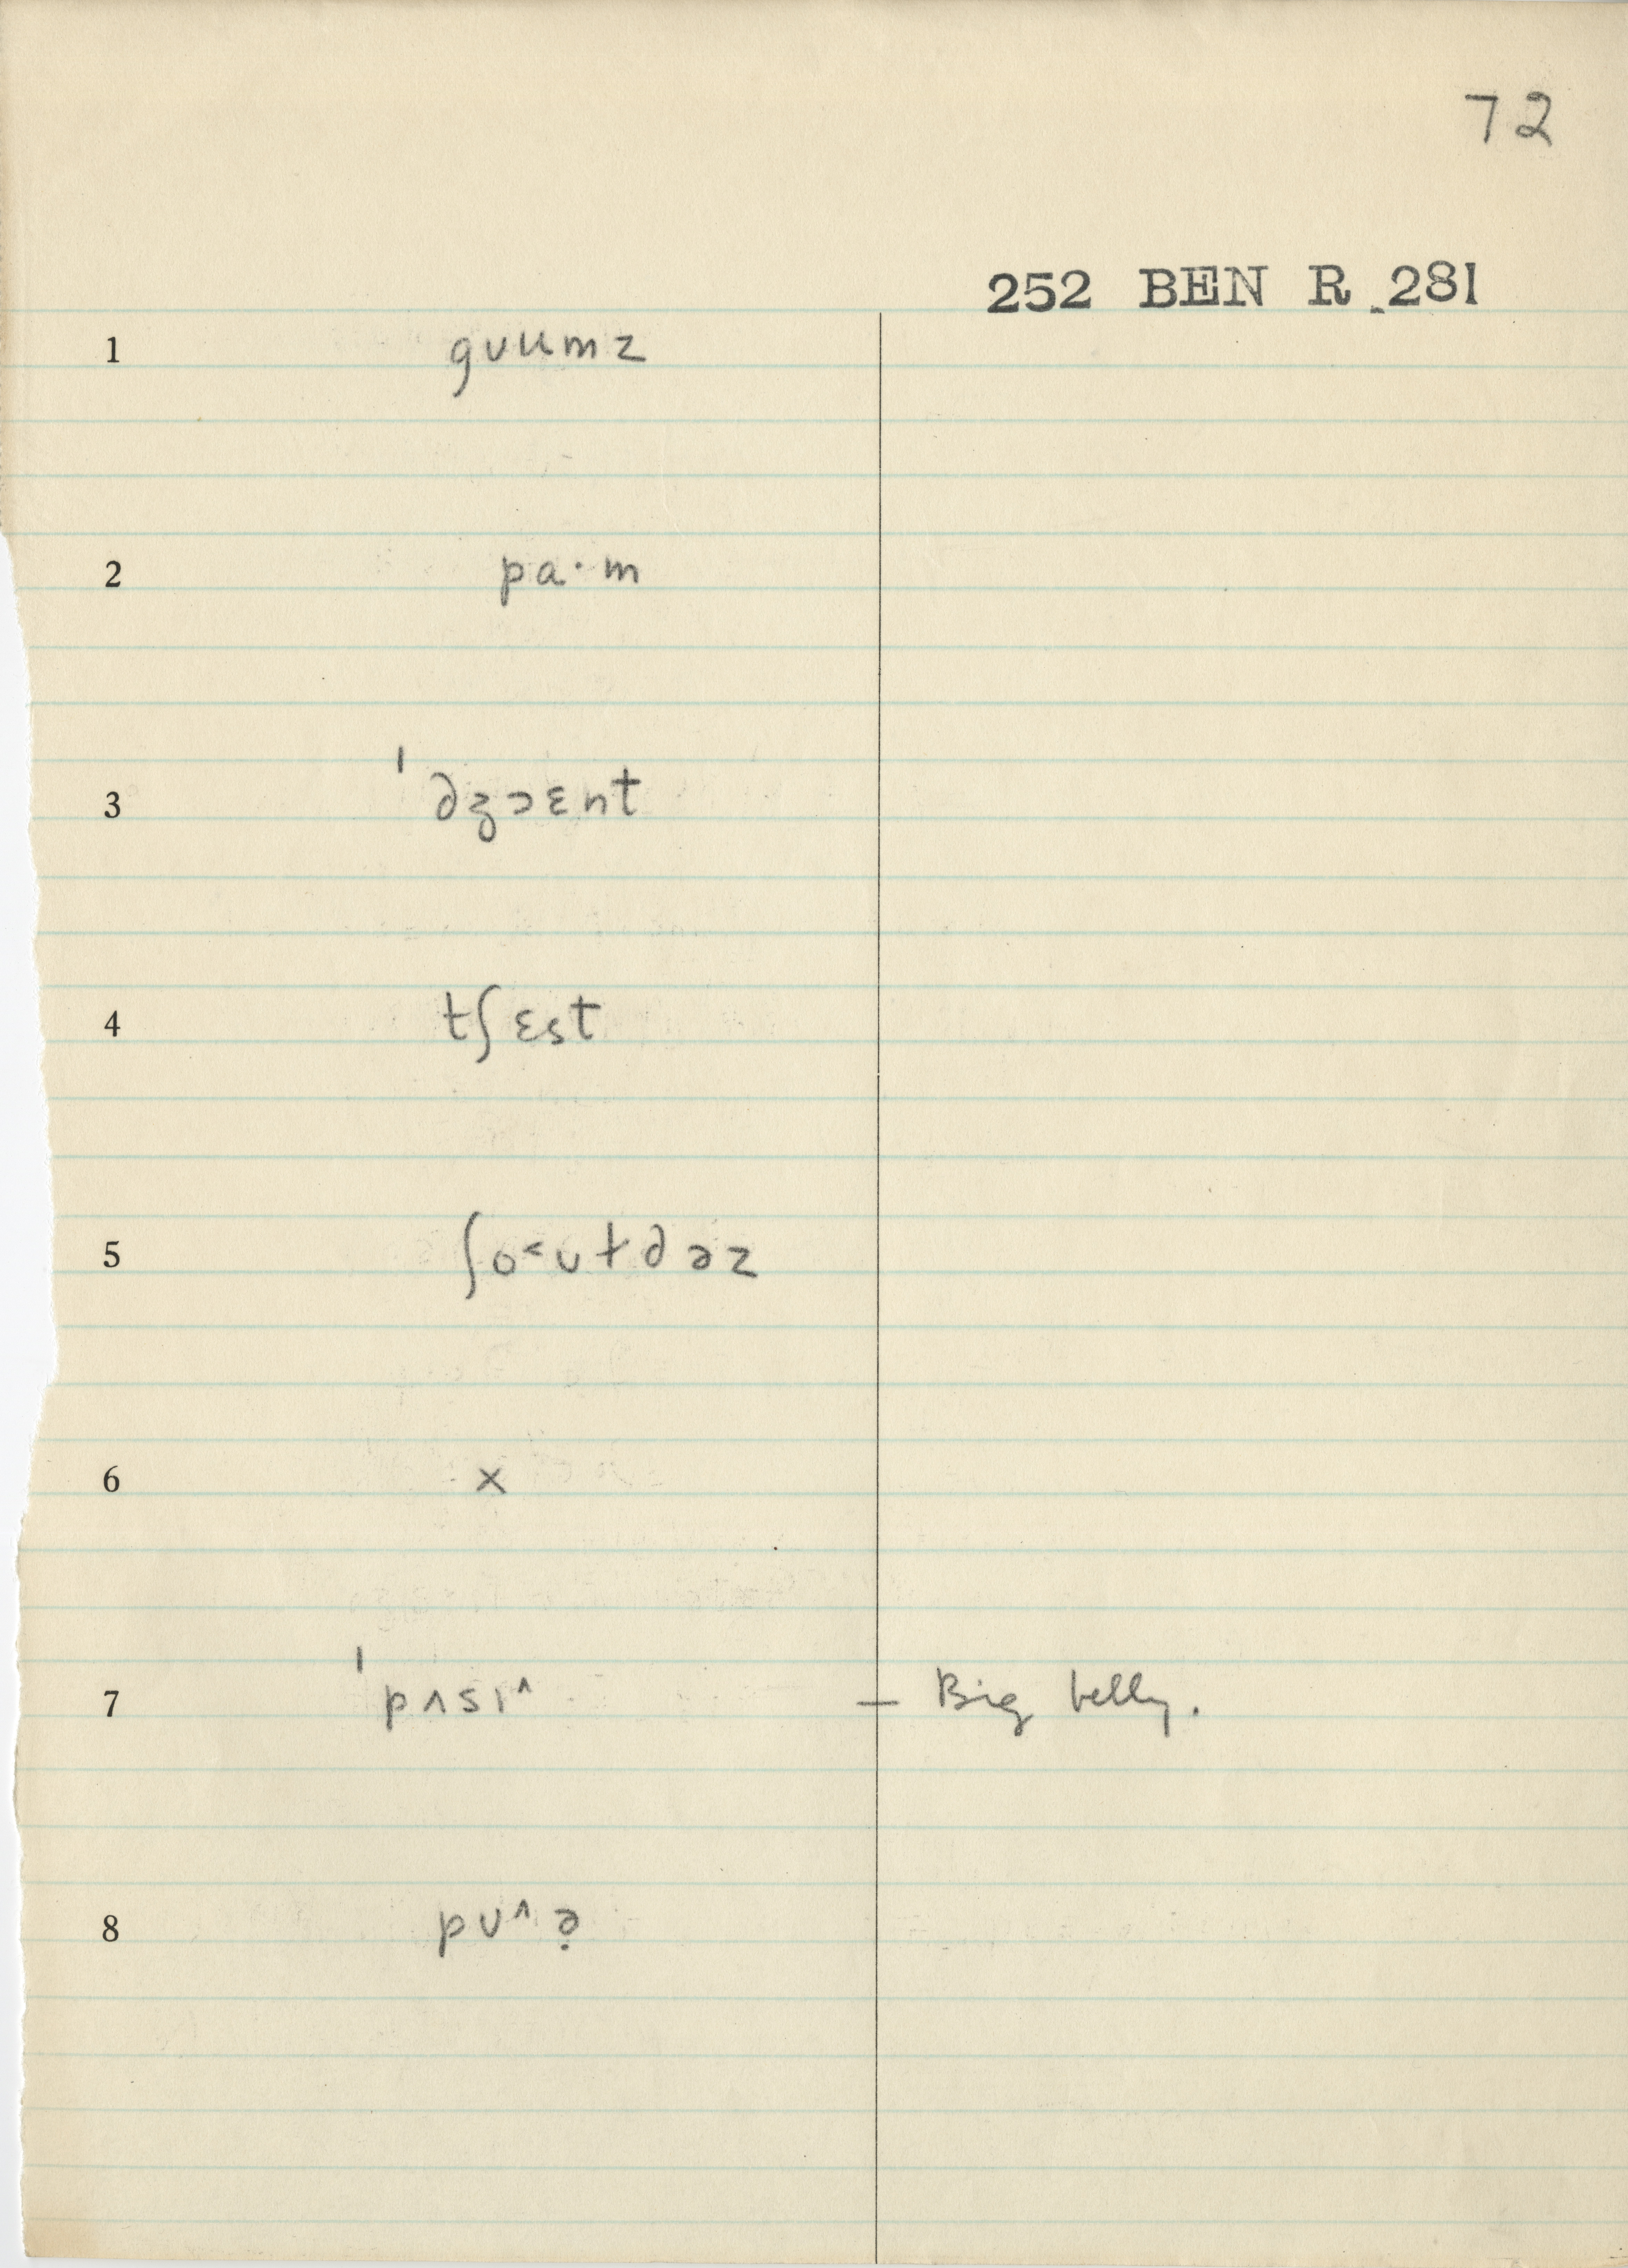 72
252 BEN R 281
1 gʋɯmz
2 pa·m
3 ˈdʒɔɛnt
4 tʃɛst
5 ʃo˂ʊtdəz
6 x
7 ˈpʌsɪ^ — Big belly.
8 pʊ^ə̣